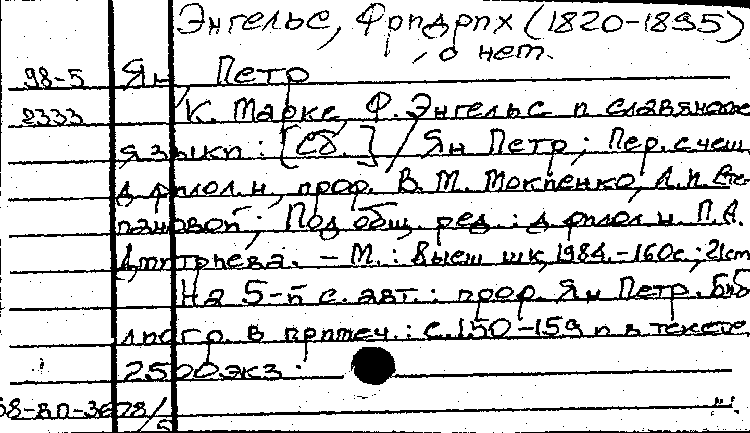 Энгельс, Фридрих (1820-1895)
, о нем.
98-5 Ян, Петр
2333 К. Маркс, Ф. Энгельс и славянские
языки: [Сб.] / Ян Петр; Пер. с чеш.
д. филол. н., проф. В. М. Мокиенко, Л. И. Сте-
пановой; Под общ. ред.: д. филол. н. П. А.
Дмитриева. - М.: Высш шк, 1984. - 160с.; 21см
На 5-й с. авт.: проф. Ян Петр. Биб-
лиогр. в примеч.: с. 150-159 и в тексте
2500экз.
68-ВП-3628/5